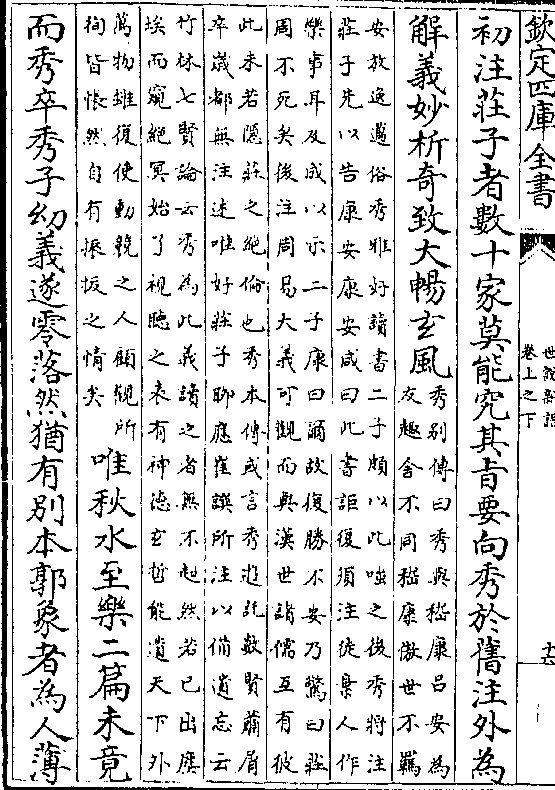 欽定四庫全書
世説新語
卷上之下
十六
初注莊子者數十家莫能究其旨要向秀於舊注外為
解義妙析奇致大暢玄風
秀别傳曰秀與嵇康吕安為
友趣舍不同嵇康傲世不羈
安放逸邁俗秀雅好讀書二子頗以此嗤之後秀將注
莊子先以告康安康安咸曰此書詎復須注徒棄人作
樂事耳及成以示二子康曰爾故復勝不安乃驚曰莊
周不死矣後注周易大義可觀而與漢世諸儒互有彼
此未若隱莊之絶倫也秀本傳或言秀遊託數賢蕭屑
卒歲都無注述唯好莊子聊應崔譔所注以備遺忘云
竹林七賢論云秀為此義讀之者無不超然若已出塵
埃而窺絶冥始了視聽之表有神德玄哲能遺天下外
萬物雖復使動競之人顧觀所
徇皆悵然自有振拔之情矣
唯秋水至樂二篇未竟
而秀卒秀子幼義遂零落然猶有别本郭象者為人薄